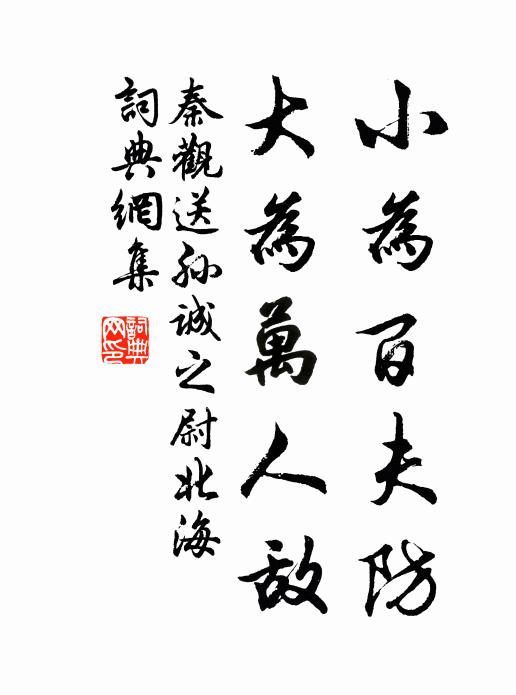 小為百夫防
大為萬人敵
秦觀送孫誠之尉北海
詞典網集
詞典
网印